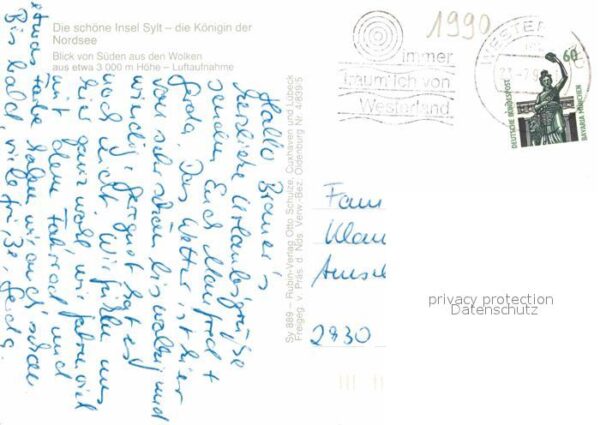 Die schöne Insel Sylt – die Königin der
Nordsee
Blick von Süden aus den Wolken
aus etwa 3 000 m Höhe – Luftaufnahme
Hallo Bramer's
herzliche Urlaubsgrüße
senden Euch Manfred +
Gerda. Das Wetter ist hier
von sehr schön bis wolkig und
windig, geregnet hat es
noch nicht. Wir fühlen uns
hier ganz wohl, wir fahren viel
mit dem Fahrrad und
etwas Farbe haben wir auch schon
Bis bald, viele Grüße, Gerda.
Sy 889 – Rubin-Verlag Otto Schulze, Cuxhaven und Lübeck
Freigeg. v. Präs. d. Nds. Verw.-Bez. Oldenburg Nr. 4/839/5
1990
immer
traumlich von
Westerland
WESTER
60
DEUTSCHE BUNDESPOST
BAVARIA MÜNCHEN
Fam
Klau
2830
privacy protection
Datenschutz